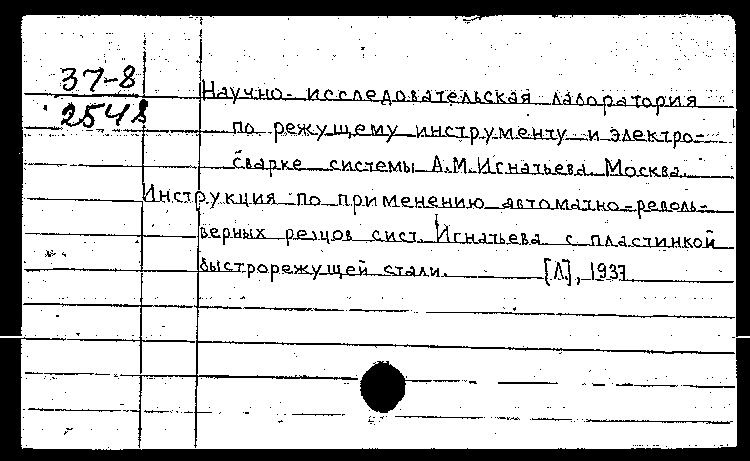 37-8
2548
Научно-исследовательская лаборатория
по режущему инструменту и электро-
сварке системы А.М.Игнатьева. Москва.
Инструкция по применению автоматно-револь-
верных резцов сист. Игнатьева с пластинкой
быстрорежущей стали. [Л.], 1937